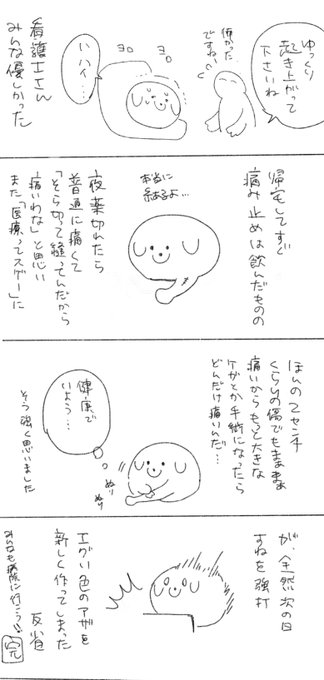 ゆっくり
起き上がって
下さいね
怖かった
ですね
ヨロ
ヨロ
ハハイ…
看護士さん
みんな優しかった
帰宅してすぐ
痛み止めは飲んだものの
本当に
結るよ…
夜薬切れたら
普通に痛くて
「そら切って縫ってんだから
痛いわな」と思い
また「医療ってスゲー」に
ほんの2センチ
くらいの傷でもまぁまぁ
痛いからもっと大きな
ケガとか手術になったら
どんだけ痛いんだ…
健康で
いよう…
ぬり
ぬり
そう強く思いました
が、全然次の日
すねを強打
エグい色のアザを
新しく作ってしまった
反省
みんなも病院に行こう!
完